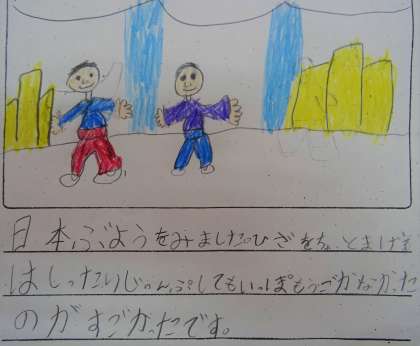 日本ぶようをみました。ひざをちょとまげを
はしったりじゃんぷしてもいっぽもうごかなかった
のがすごかったです。